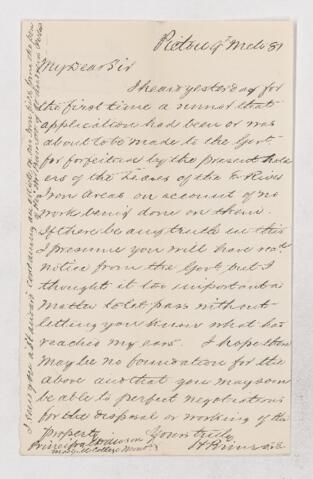 Pictou 9th Mch 81
My Dear Sir
I heard yesterday for
the first time a rumor that
application had been or was
about to be made to the Govt.
for forfeiture by the present hold
ers of the Leases of the E River
Iron Areas on account of no
work being done on them.
If there be any truth in this
I presume you will have recd
notice from the Govt, but I
thought it too important a
matter to let pass without
letting you know what has
reached my ears. I hope there
may be no foundation for the
above and that you may soon
be able to perfect negotiations
for the disposal or working of the
property
Yours truly
Principal Dawson
McGill College Montl
I send you a Standard containing